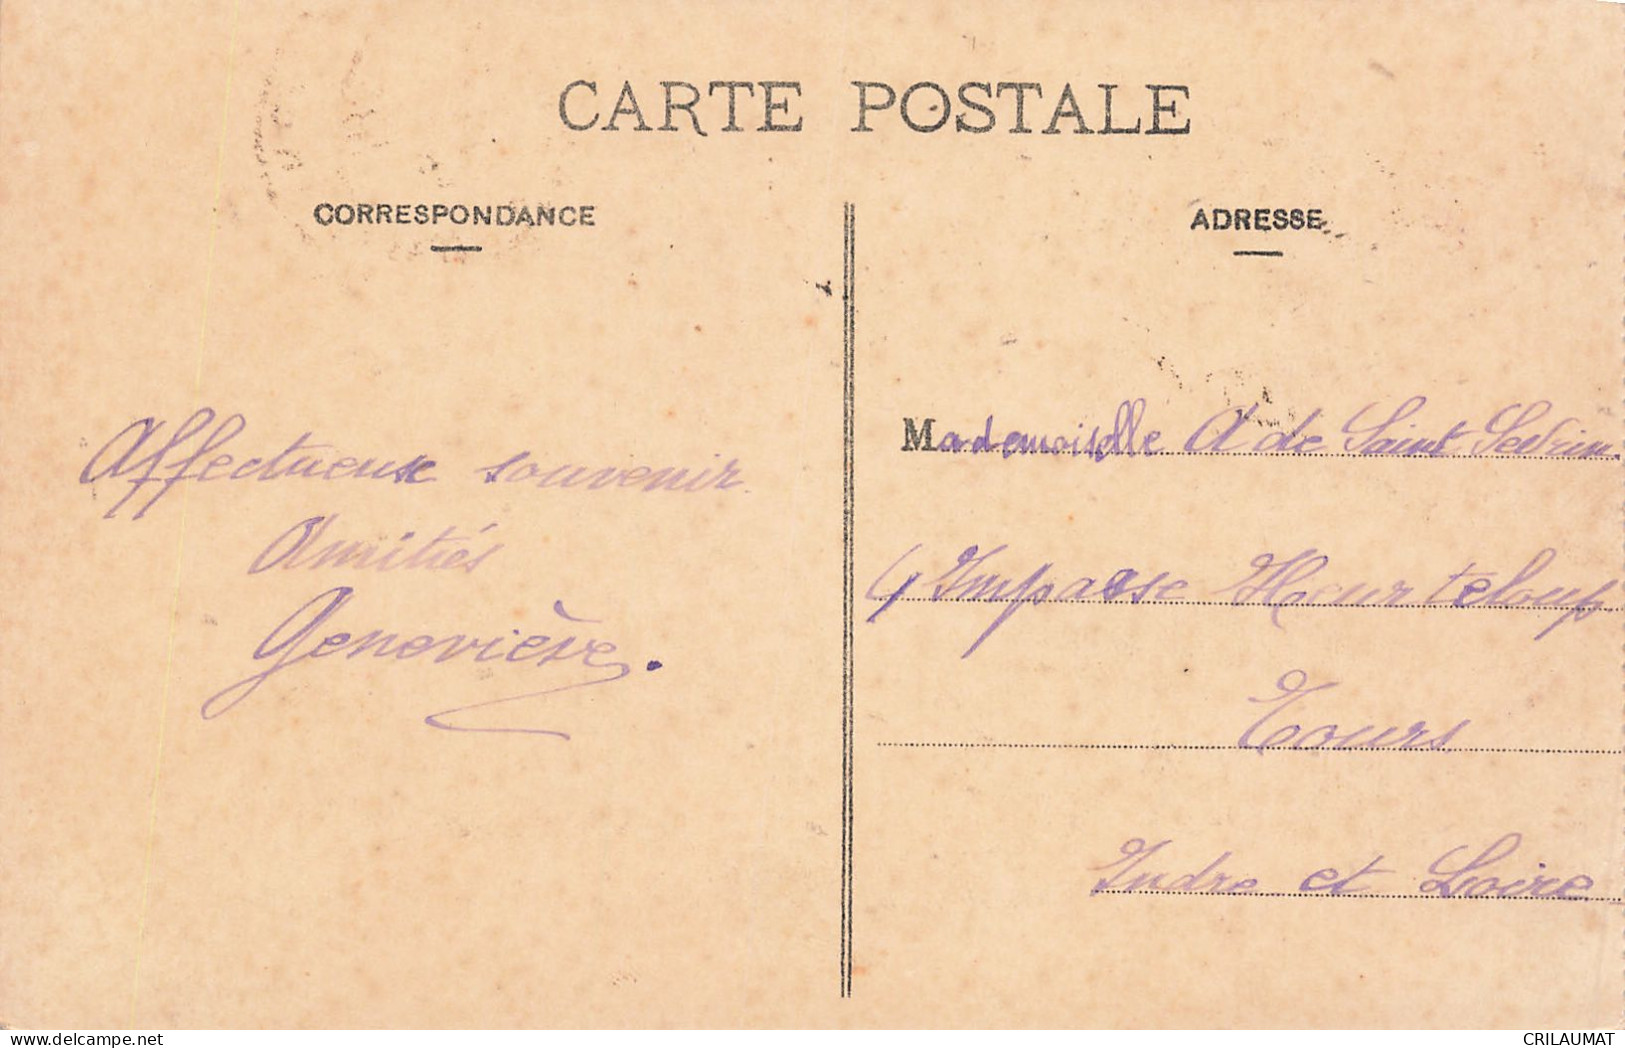 CARTE POSTALE
CORRESPONDANCE
ADRESSE
Affectueux souvenir
Amitiés
Geneviève.
Mademoiselle A de Saint Sevrin
4 Impasse Heurteloup
Tours
Indre et Loire
delcampe.net
CRILAUMAT